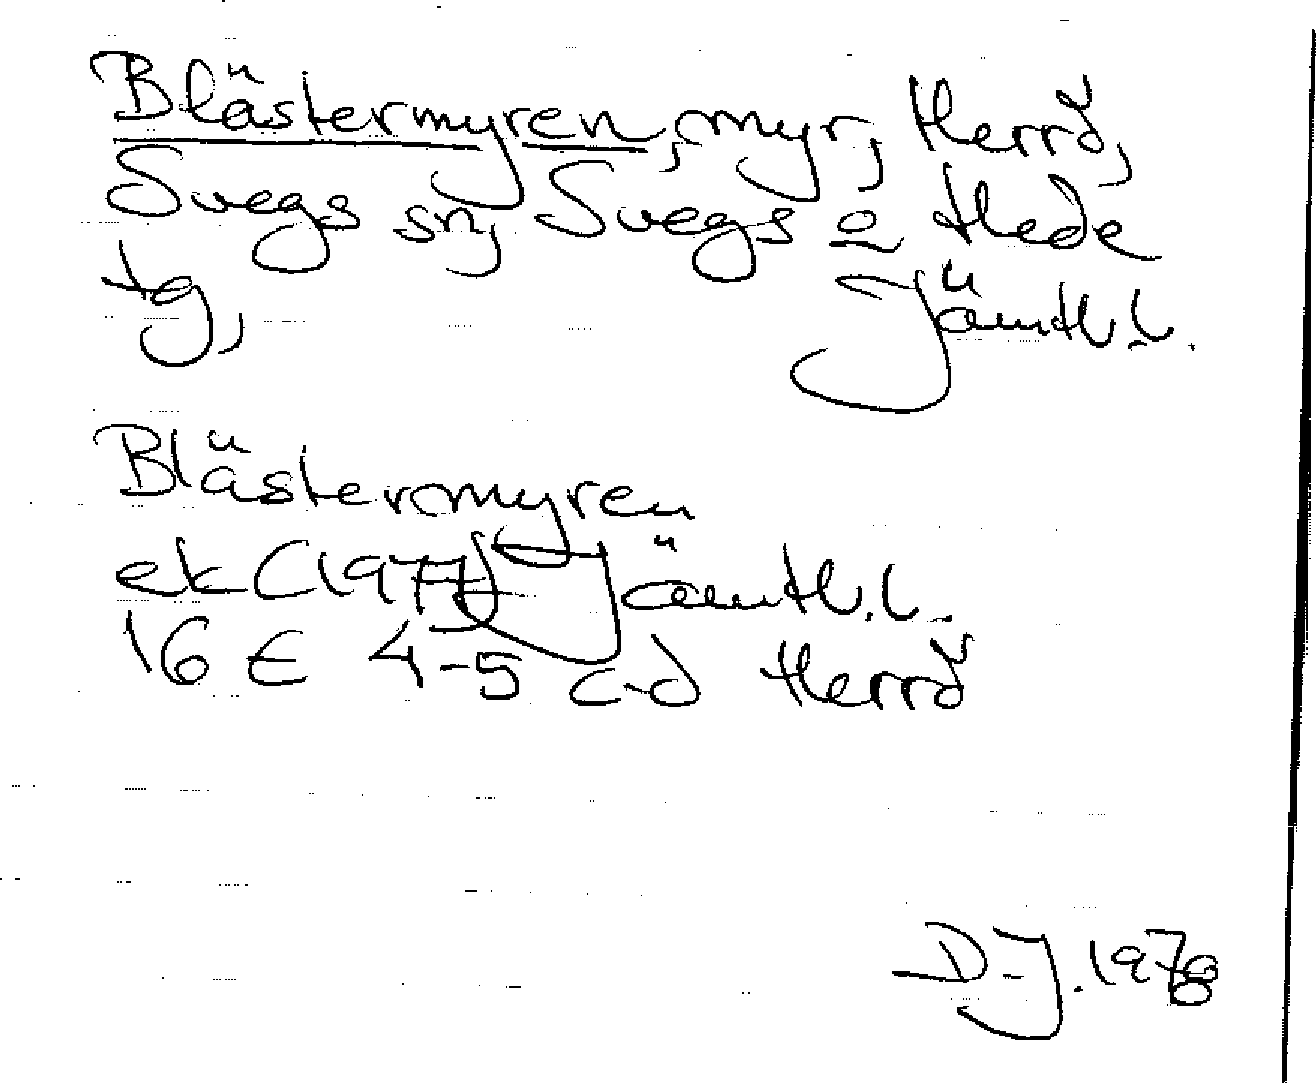 Blästermyren, myr, Herrd,
Svegs sn, Svegs o Hede
tg, Jämtl.l.
Blästermyren
ek (1977) Jämtl.l.
16 E 4-5 c-d Herrd
D-J. 1978